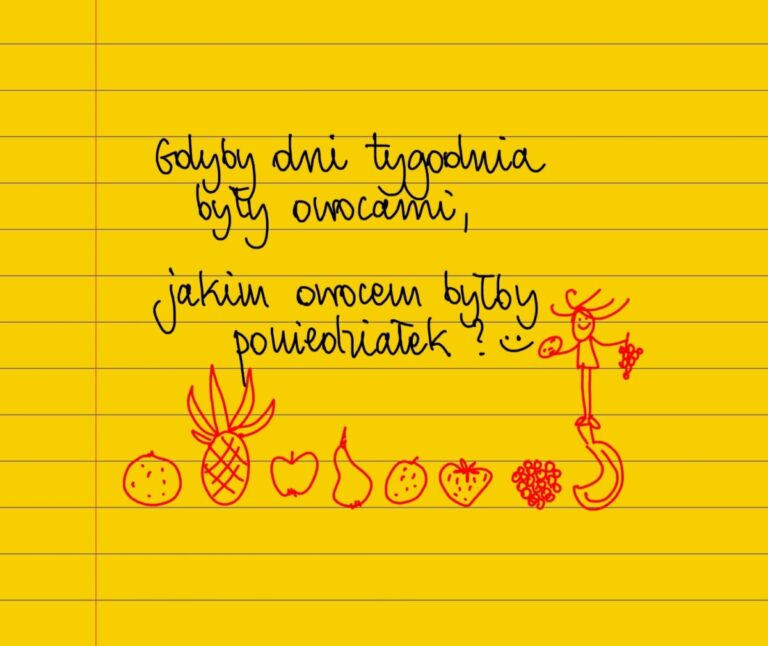 Gdyby dni tygodnia
były owocami,
jakim owocem byłby
poniedziałek? :)